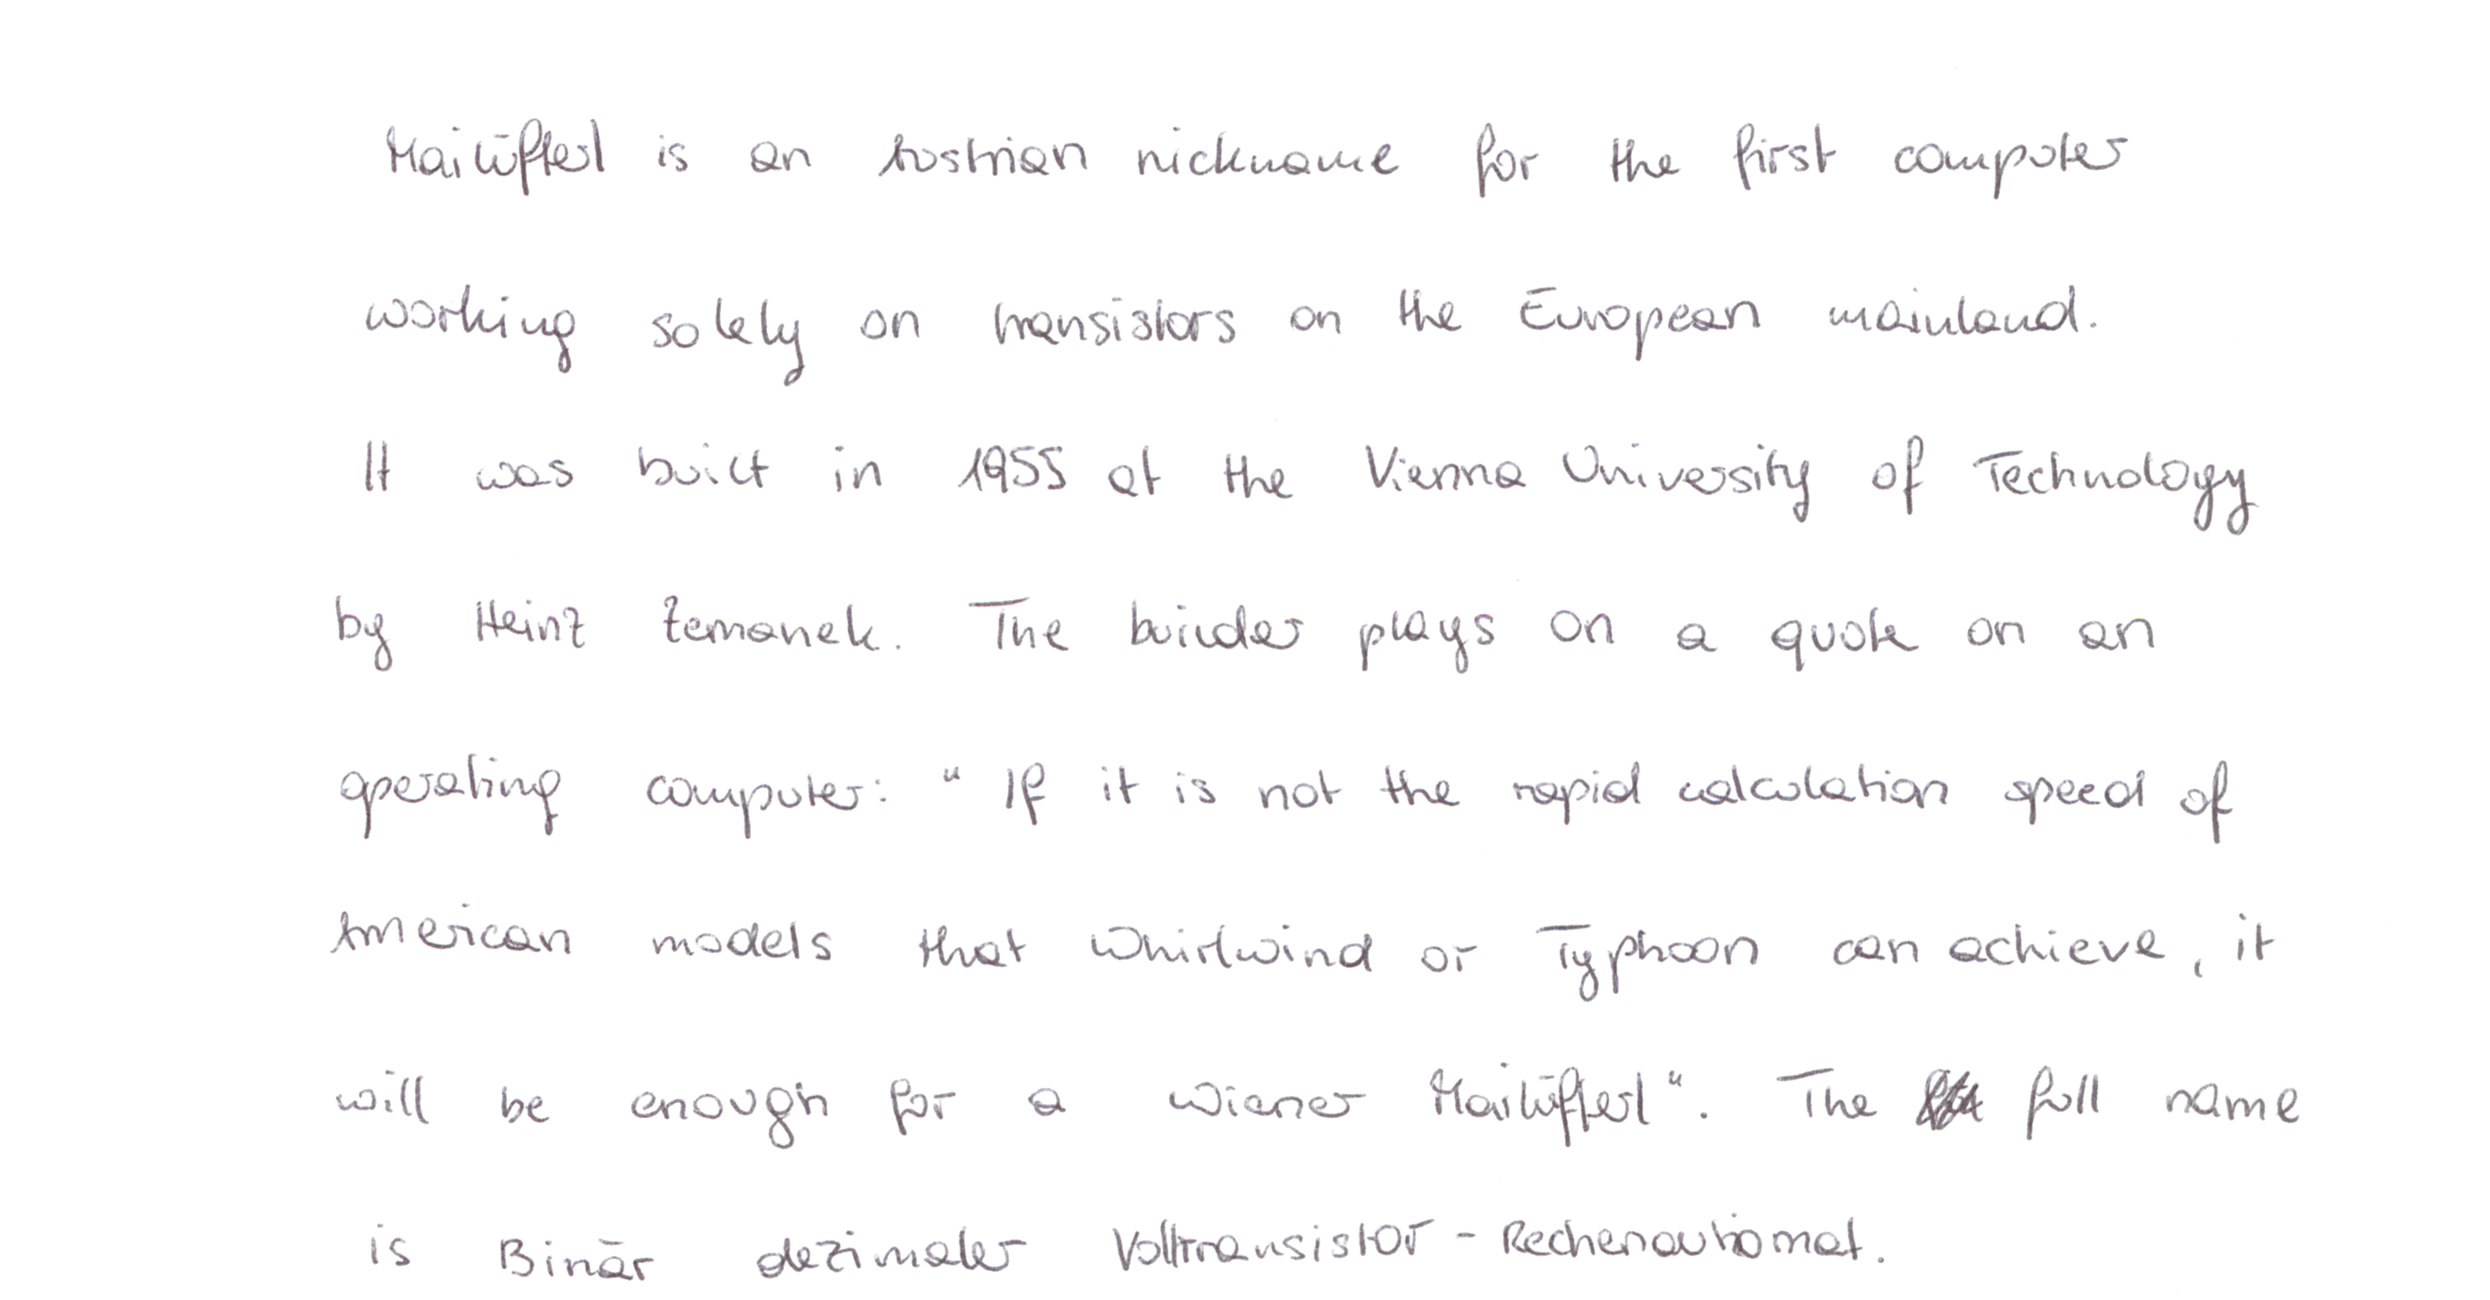 Mailüfterl is an Austrian nickname for the first computer
working solely on transistors on the European mainland.
It was built in 1955 at the Vienna University of Technology
by Heinz Zemanek. The builder plays on a quote on an
operating computer: "If it is not the rapid calculation speed of
American models that Whirlwind or Typhoon can achieve, it
will be enough for a Wiener Mailüfterl". The full name
is Binär dezimaler Volltransistor-Rechenautomat.